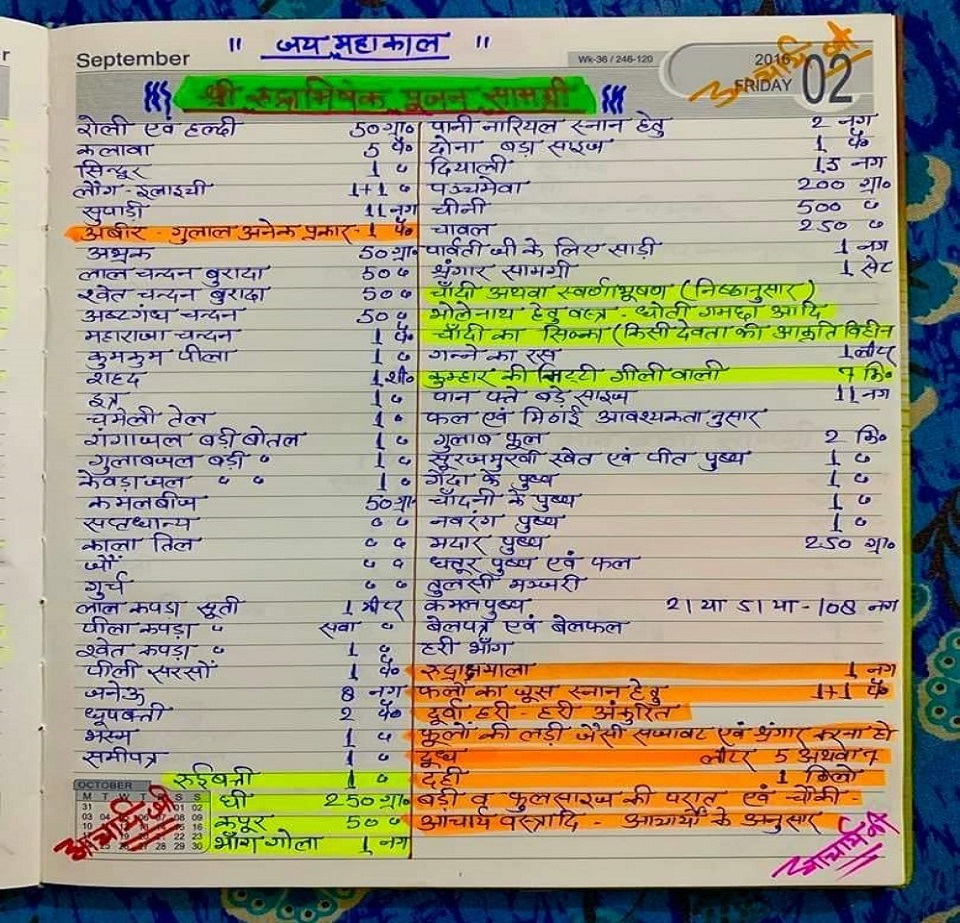 " जय महाकाल "
September
Wk-36 / 246-120
2016
FRIDAY 02
आचार्य जी
श्री रुद्राभिषेक पूजन सामग्री
रोली एवं हल्दी 50 ग्रा०
कलावा 5 पै०
सिन्दूर 1 "
लौंग - इलाइची 1+1 "
सुपाड़ी 11 नग
अबीर - गुलाल अनेक प्रकार - 1 पै०
अभ्रक 50 ग्रा०
लाल चन्दन बुरादा 50 "
श्वेत चन्दन बुरादा 50 "
अष्टगंध चन्दन 50 "
महाराजा चन्दन 1 पै०
कुमकुम पीला 1 "
शहद 1 शी०
इत्र 1 "
चमेली तेल 1 "
गंगाजल बड़ी बोतल 1 "
गुलाबजल बड़ी " 1 "
केवड़ाजल " " 1 "
कमलबीज 50 ग्रा०
सप्तधान्य " "
काला तिल " "
जौ " "
गुर्च " "
लाल कपडा सूती 1 मीटर
पीला कपडा " सवा "
श्वेत कपडा " 1 "
पीली सरसों 1 पै०
जनेऊ 8 नग
धूपबत्ती 2 पै०
भस्म 1 "
समीपत्र 1 "
रुईबत्ती 1 "
घी 250 ग्रा०
कपूर 50 "
भाँग गोला 1 नग
पानी नारियल स्नान हेतु 2 नग
दोना बड़ा साइज 1 पै०
दियाली 15 नग
पञ्चमेवा 200 ग्रा०
चीनी 500 "
चावल 250 "
पार्वती जी के लिए साड़ी 1 नग
श्रृंगार सामग्री 1 सेट
चाँदी अथवा स्वर्णाभूषण (निष्ठानुसार)
भोलेनाथ हेतु वस्त्र - धोती गमछा आदि
चाँदी का सिक्का (किसी देवता की आकृति विहीन
गन्ने का रस 1 लीटर
कुम्हार की मिट्टी गीली वाली 7 कि०
पान पत्ते बड़े साइज 11 नग
फल एवं मिठाई आवश्यकतानुसार
गुलाब फूल 2 कि०
सूरजमुखी श्वेत एवं पीत पुष्प 1 "
गेंदा के पुष्प 1 "
चाँदनी के पुष्प 1 "
नवरंग पुष्प 1 "
मदार पुष्प 250 ग्रा०
धतूर पुष्प एवं फल
तुलसी मञ्जरी
कमलपुष्प 21 या 51 या - 108 नग
बेलपत्र एवं बेलफल
हरी भाँग
रुद्राक्षमाला 1 नग
फलों का जूस स्नान हेतु 1+1 पै०
दूर्वा हरी - हरी अंकुरित
फूलों की लड़ी जैसी सजावट एवं श्रृंगार करना हो
दूध लीटर 5 अथवा 7
दही 1 किलो
बड़ी व फुलसाइज की परात एवं चौकी -
आचार्य वस्त्रादि - आचार्यों के अनुसार
OCTOBER
आचार्य जी
आचार्य जी